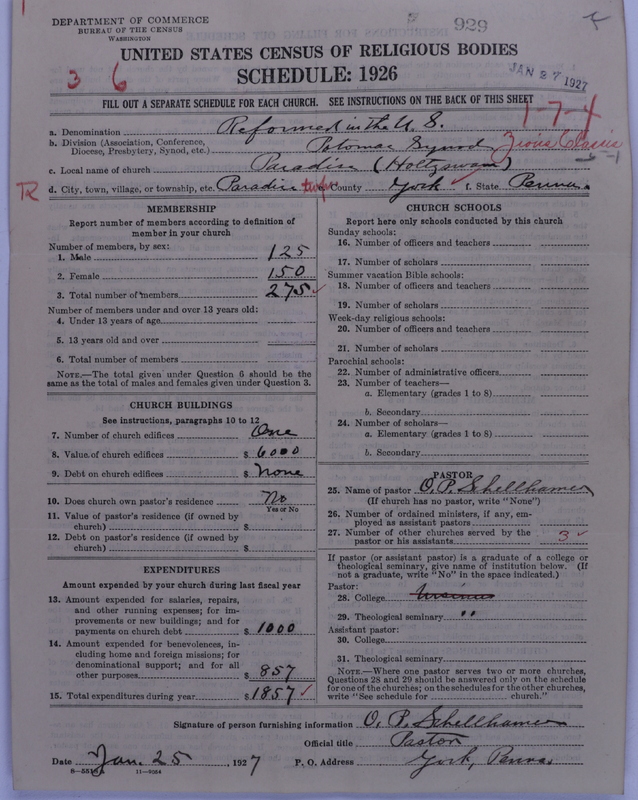 DEPARTMENT OF COMMERCE
BUREAU OF THE CENSUS
WASHINGTON
929
UNITED STATES CENSUS OF RELIGIOUS BODIES
SCHEDULE: 1926
3 6
JAN 27 1927
FILL OUT A SEPARATE SCHEDULE FOR EACH CHURCH. SEE INSTRUCTIONS ON THE BACK OF THIS SHEET
1-7-4
a. Denomination Reformed in the U. S.
b. Division (Association, Conference, Diocese, Presbytery, Synod, etc.) Potomac Synod Zions Classis
c. Local name of church Paradise (Holtzswam)
d. City, town, village, or township, etc. Paradise twp County York f. State Penna.
MEMBERSHIP
Report number of members according to definition of
member in your church
Number of members, by sex:
1. Male 125
2. Female 150
3. Total number of members 275
Number of members under and over 13 years old:
4. Under 13 years of age
5. 13 years old and over
6. Total number of members
NOTE.—The total given under Question 6 should be the
same as the total of males and females given under Question 3.
CHURCH BUILDINGS
See instructions, paragraphs 10 to 12
7. Number of church edifices One
8. Value of church edifices $ 6000
9. Debt on church edifices $ None
10. Does church own pastor's residence No
Yes or No
11. Value of pastor's residence (if owned by
church) $
12. Debt on pastor's residence (if owned by
church) $
EXPENDITURES
Amount expended by your church during last fiscal year
13. Amount expended for salaries, repairs,
and other running expenses; for im-
provements or new buildings; and for
payments on church debt $ 1000
14. Amount expended for benevolences, in-
cluding home and foreign missions; for
denominational support; and for all
other purposes $ 857
15. Total expenditures during year $ 1857
CHURCH SCHOOLS
Report here only schools conducted by this church
Sunday schools:
16. Number of officers and teachers
17. Number of scholars
Summer vacation Bible schools:
18. Number of officers and teachers
19. Number of scholars
Week-day religious schools:
20. Number of officers and teachers
21. Number of scholars
Parochial schools:
22. Number of administrative officers
23. Number of teachers—
a. Elementary (grades 1 to 8)
b. Secondary
24. Number of scholars—
a. Elementary (grades 1 to 8)
b. Secondary
PASTOR
25. Name of pastor O. P. Schellhamer
(If church has no pastor, write "None")
26. Number of ordained ministers, if any, em-
ployed as assistant pastors
27. Number of other churches served by the
pastor or his assistants 3
If pastor (or assistant pastor) is a graduate of a college or
theological seminary, give name of institution below. (If
not a graduate, write "No" in the space indicated.)
Pastor:
28. College Ursinus
29. Theological seminary "
Assistant pastor:
30. College
31. Theological seminary
NOTE.—Where one pastor serves two or more churches,
Questions 28 and 29 should be answered only on the schedule
for one of the churches; on the schedules for the other churches,
write "See schedule for church."
Signature of person furnishing information O. P. Schellhamer
Official title Pastor
Date Jan. 25, 1927 P. O. Address York, Penna.
11—9264